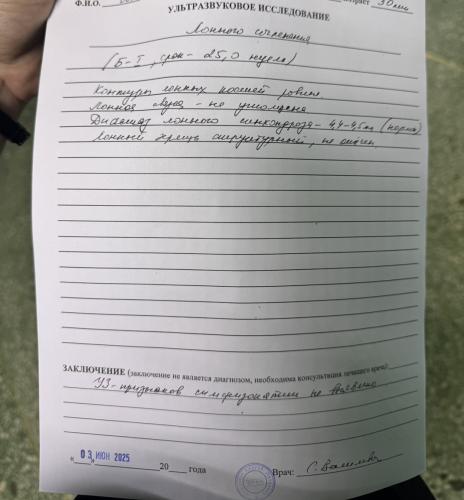 Ф.И.О.
возраст 30 лет
УЛЬТРАЗВУКОВОЕ ИССЛЕДОВАНИЕ
Лонного сочленения
(Б-Т, срок - 25,0 недель)
Контуры лонных костей ровные
Лонная дуга - не утолщена
Диастаз лонного синхондроза - 4,4-4,5мм (норма)
Лонный хрящ структурный, не отёчен
ЗАКЛЮЧЕНИЕ (заключение не является диагнозом, необходима консультация лечащего врача)
УЗ-признаков симфизопатии не выявлено
«03» ИЮН 2025
20 года
Врач: